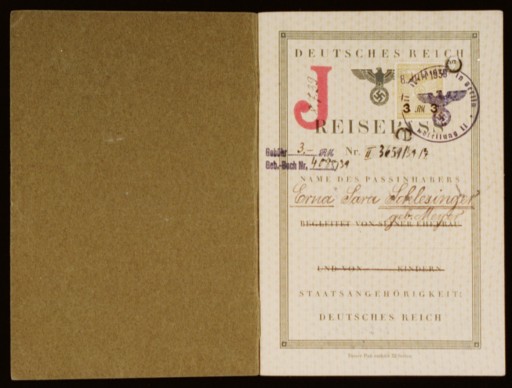 DEUTSCHES REICH
J
REISEPASS
Gebühr 3,– RM.
Nr. II 3059/39
Geb.-Buch Nr.
NAME DES PASSINHABERS
Erna Sara Schlesinger
geb. Meyer
BEGLEITET VON SEINER EHEFRAU
UND VON KINDERN
STAATSANGEHÖRIGKEIT:
DEUTSCHES REICH